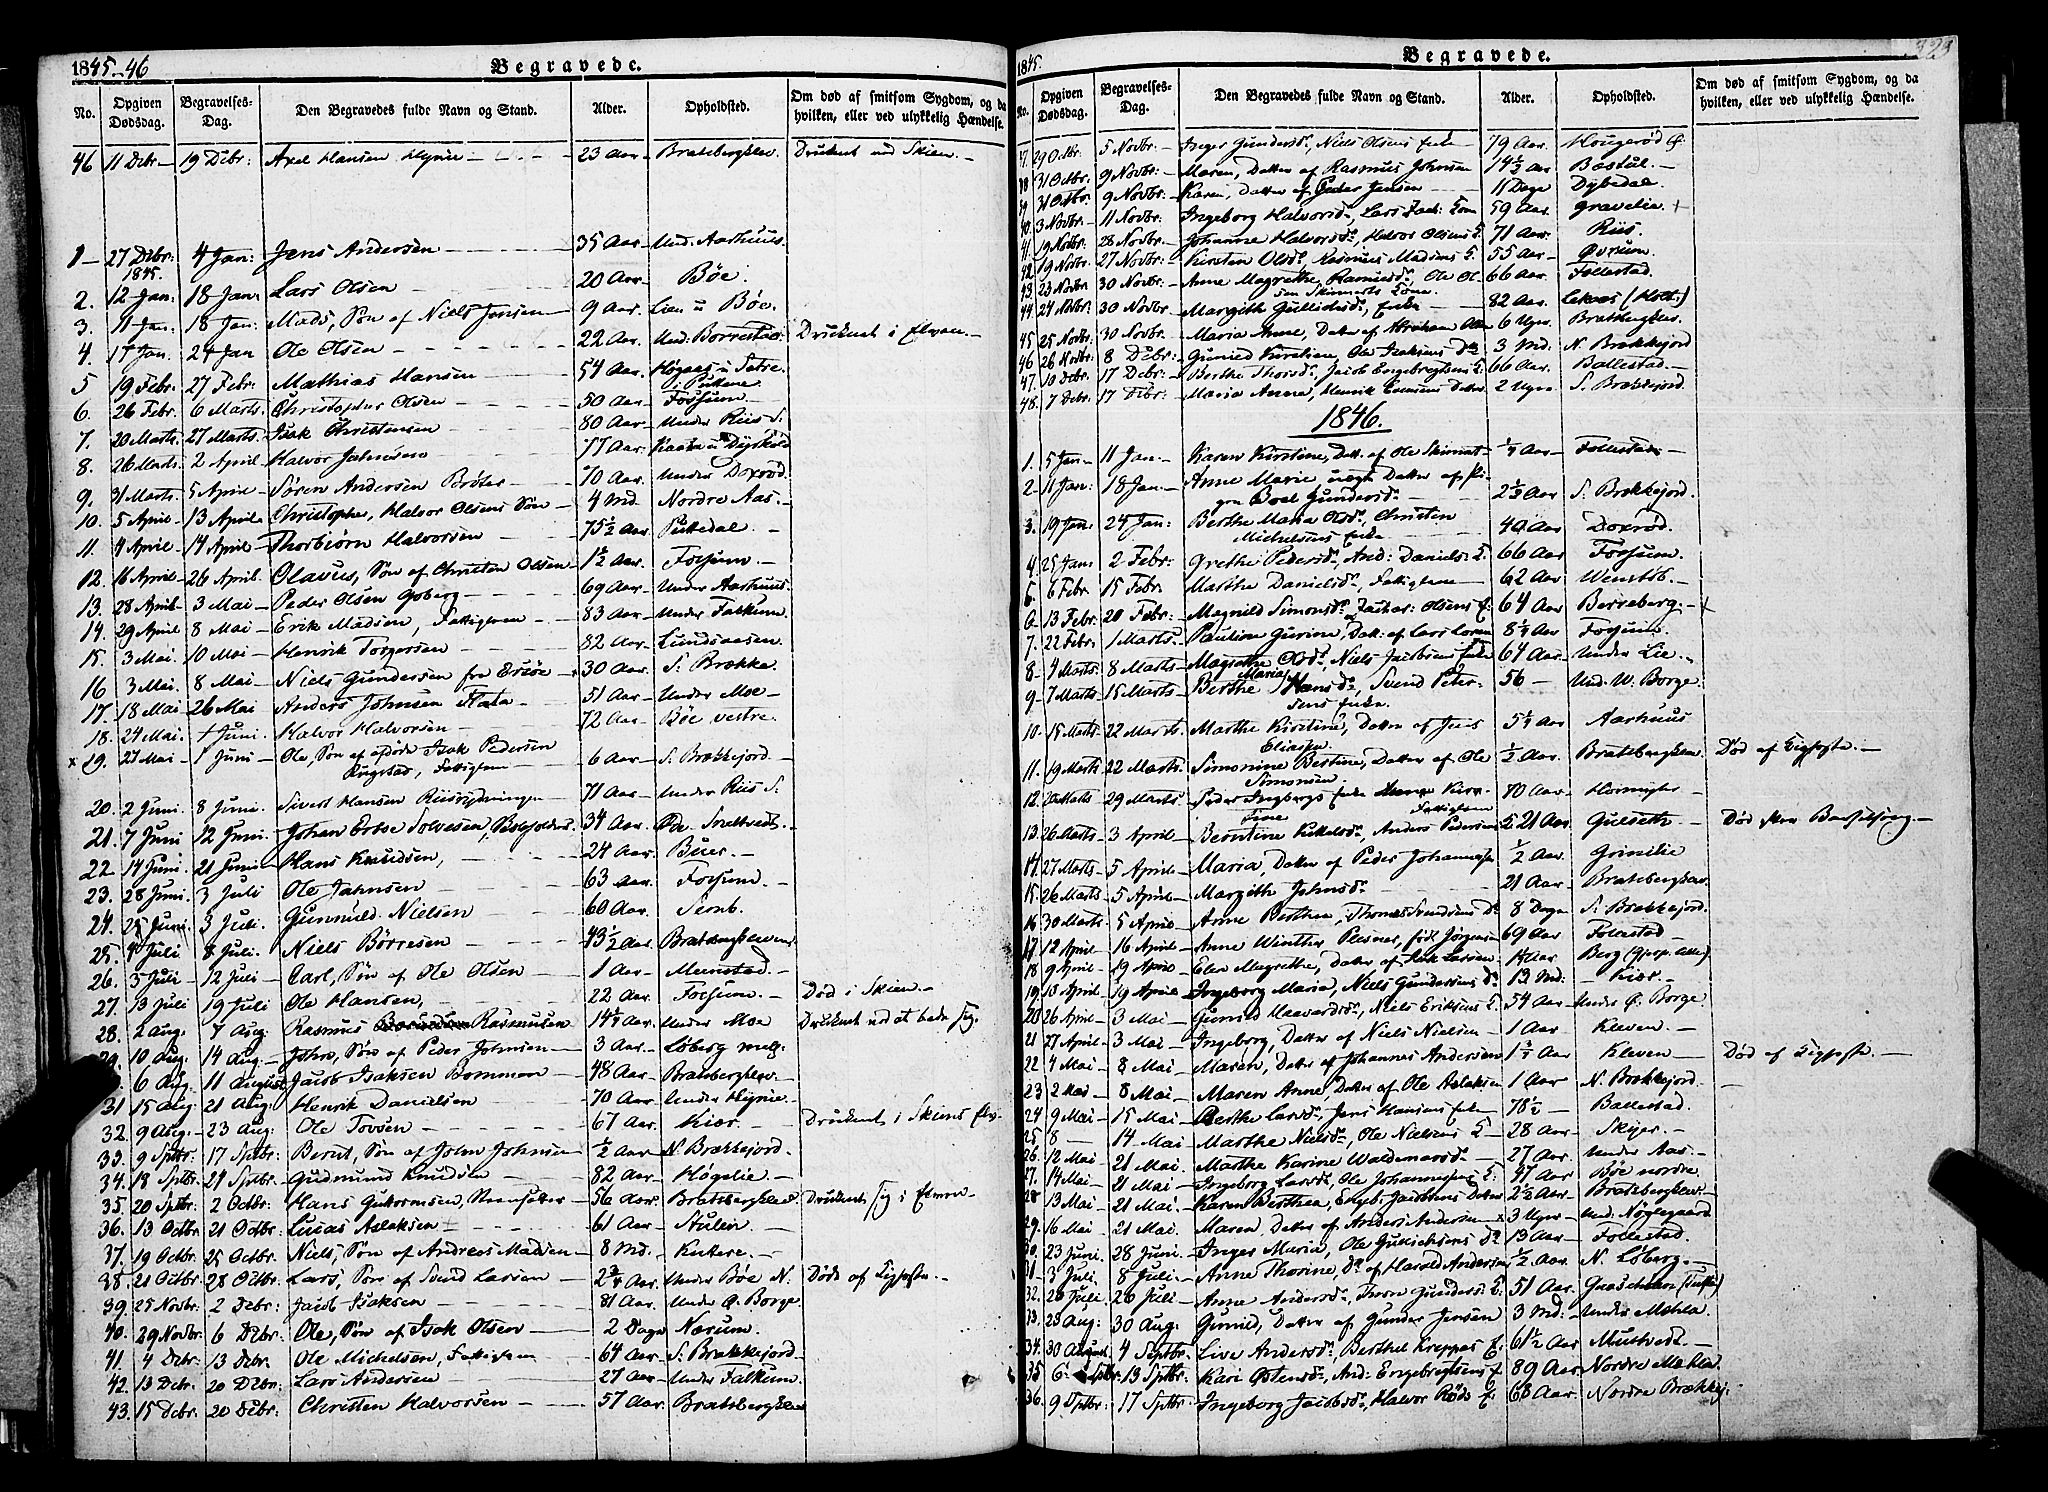 1845-46 Begravede.
No. Opgiven Dødsdag. Begravelses-Dag. Den Begravedes fulde Navn og Stand. Alder. Opholdsted. Om død af smitsom Sygdom, og da hvilken, eller ved ulykkelig Hændelse.
46 11 Debr 19 Debr: Axel Hansen Hynie 23 Aar Bratsbergklev. Druknet ved Skien.
1 27 Debr: 4 Jan: Jens Andersen 35 Aar Und. Aarhuus.
1845.
2. 12 Jan: 18 Jan: Lars Olsen 20 Aar Bøe.
3. 11 Jan: 18 Jan: Mads, Søn af Niels Jensen 9 Aar. Lien u Bøe.
4. 17 Jan. 24 Jan Ole Olsen 22 Aar. Und: Borrestad Druknet i Elven
5 19 Febr: 27 Febr: Mathias Hansen 54 Aar. Høgaas u Sætre
6. 26 Febr. 6 Marts Christopher Olsen 50 Aar Fossum
7. 20 Marts 27 Marts Isak Christensen 80 Aar Under Riis S.
8. 26 Marts. 2 April Halvor Johnsen 77 Aar
9. 31 Marts. 5 April Søren Andersen Bråter 70 Aar Under Doxrød.
10. 5 April 13 April Christopher, Halvor Olsens Søn 4 Md. Nordre Aas.
11. 4 April 14 April Thorbiørn Halvorsen 75½ Aar Puttedal.
12. 16 April 26 April. Olavus, Søn af Christen Olsen 1½ Aar Fossum.
13. 28 April 3 Mai Peder Olsen Goberg 69 Aar Under Aarhuus.
14. 29 April 8 Mai Erik Madsen, Fattiglem 83 Aar. Under Falkum.
15. 3 Mai. 10 Mai Henrik Torgersen 82 Aar. Lundsaasen.
16 3 Mai. 8 Mai Niels Gundersen fra 30 Aar. S. Brække.
17. 18 Mai 26 Mai Anders Johnsen Flata 51 Aar. Under Moe
18. 24 Mai. 1 Juni. Halvor Halvorsen 72 Aar Bøe vestre.
x 19. 27 Mai 1 Juni Ole, Søn af afdøde Isak Pedersen
Rugstad, Fattiglem 6 Aar S. Brækkejord.
20. 2 Juni. 8 Juni. Sivert Hansen Riisrydningen 71 Aar. Under Riis S.
21. 7 Juni 12 Juni. Johan Solvesen, 34 Aar. Øde. Sneltvedt.
22. 14 Juni. 21 Juni Hans Knudsen, 24 Aar. Buer.
23. 28 Juni. 3 Juli Ole Jahnsen 63 Aar. Fossum.
24. 25 Juni 3 Juli. Gunnuld Nielsen 60 Aar. Semb.
25. 4 Juli 8 Juli. Niels Børresen 43½ Aar. Bratsbergkleven
26. 5 Juli 12 Juli Carl, Søn af Ole Olsen 1 Aar Meenstad.
27. 13 Juli 19 Juli Ole Hansen, 22 Aar. Fossum. Død i Skien
28. 2 Aug. 7 Aug: Rasmus Rasmusen 14¼ Aar Under Moe Druknet ved at bade sig.
29. 10 Aug. 14 Aug. John, Søn af Peder Johnsen 3 Aar Løberg
6 Aug. 11 August Jacob Isaksen Bommen 48 Aar. Bratsbergklev.
31 15 Aug: 21 Aug: Henrik Danielsen 70 Aar Under Hynie.
32. 9 Aug: 23 Aug: Ole Tovsen 67 Aar. Kiær. Druknet i Skiens Elv.
33. 9 Sptbr: 17 Sptbr: Bernt, Søn af John Johnsen ½ Aar N. Brækkejord.
34. 13 Sptbr. 21 Sptbr: Gudmund Knudsen 82 Aar. Høgelie.
35. 20 Sptbr. 2 Octbr: Hans Guttormsen, 56 Aar. Bratsbergklev Druknet sig i Elven
36. 13 Octbr 21 Octbr: Lucas Aslaksen 61 Aar Stulen
37. 19 Octbr. 25 Octbr. Niels, Søn af Andreas Madsen 8 Md. Kittere.
38. 21 Octbr 28 Octbr. Lars, Søn af Svend Larsen 2¾ Aar. Under Bøe N. Døde af
39. 25 Novbr: 2 Debr: Jacob Isaksen 81 Aar. Under Ø. Borge.
40. 29 Novbr: 6 Debr: Ole, Søn af Isak Olsen 2 Dage Nærum.
41. 4 Debr: 13 Debr. Ole Michelsen, Fattiglem 64 Aar. S. Brækkejord
42. 13 Debr. 20 Debr: Lars Andersen 27 Aar Under Falkum.
43. 15 Debr. 20 Debr: Christen Halvorsen 57 Aar. Bratsbergklev
1845. Begravede. 323
No. Opgiven Dødsdag. Begravelses-Dag. Den Begravedes fulde Navn og Stand. Alder. Opholdsted. Om død af smitsom Sygdom, og da hvilken, eller ved ulykkelig Hændelse.
37. 29 Octbr. 5 Novbr: Inger Gundersd., Niels Olsens Enke 79 Aar. Hougerød Ø.
38 31 Octbr. 9 Novbr: Maren, Datter af Rasmus Johnsen 14½ Aar Bastul.
39 31 Octbr. 9 Novbr: Karen, Datter af Peder Jensen 11 Dage Dybedal.
40. 3 Novbr: 11 Novbr: Ingeborg Halvorsd., Lars Zach: 59 Aar. Gravelie. +
41. 19 Novbr: 28 Novbr: Johanne Halvorsd., Halvor Olsens 71 Aar. Riis.
42. 19 Novbr. 27 Novbr: Kirsten Olsd., Rasmus Madsens 55 Aar Øvrum.
43. 23 Novbr. 30 Novbr: Anne Magrethe Rasmusd., Ole Ol-
sen Skimerts 66 Aar. Follestad.
44. 24 Novbr: 30 Novbr: Margith Gullichsd., Enke 82 Aar.
45 25 Novbr: 30 Novbr: Maria Anne, Datter af Abraham 6 Uger Bratsbergklev.
46 26 Novbr: 8 Debr: Gunild Kirstine, Ole Isaksens Dr. 3 Md. N. Brækkejord
47. 10 Debr. 17 Debr: Berthe Thorsd., Jacob Engebregtsens 66 Aar. Ballestad.
48. 7 Debr. 17 Debr: Maria Anne, Henrik Datter 2 Uger S. Brækkejord.
1846.
1. 5 Jan 11 Jan. Karen Kirstine, Datt. af Ole Skimert ¼ Aar Follestad.
2 11 Jan: 18 Jan. Anne Marie, uægte Datter af Pi-
gen Boel Gundersd. 2½ Aar S. Brækkejord.
3. 19 Jan: 24 Jan: Berthe Maria Olsd., Christen
Michelsens Enke 40 Aar Doxrød.
4 25 Jan: 2 Febr: Grethe Pedersd., And: Daniels: 66 Aar Fossum.
5. 6 Febr. 15 Febr. Marthe Danielsd., Fattiglem 62 Aar Wenstøb.
6 13 Febr: 20 Febr: Magnild Simonsd., Zachar: Olsens E. 64 Aar Berreberg. +
7. 22 Febr: 1 Marts. Pauline Gurine, Datt: af Lars 8¼ Aar Fossum.
8. 4 Marts. 8 Marts Magrethe Olsd., Niels Jacobsens Enke 64 Aar. Under Lie.
9 7 Marts 15 Marts. Berthe Maria Hansd., Svend Peter-
sens Enke. 56 Und. W. Borge.
10. 15 Marts. 22 Marts. Marthe Kirstine, Datter af Jens
Eliassen 5¼ Aar Aarhuus
11. 19 Marts 22 Marts. Simonine Bertine, Datter af Ole
Simonsen ½ Aar. Bratsbergklev Død af
12. 20 Marts 29 Marts. Peder Ingbergs Enke Kir-
stine Fattiglem 70 Aar
13. 26 Marts. 3 April Berntine Kittelsd., Anders Pedersens 21 Aar. Gulseth. Død Barselseng
14. 27 Marts 5 April Maria, Datter af Peder Johannessen ½ Aar Grinilie
15. 26 Marts 5 April Margithe Johnsd. 21 Aar Bratsbergklev.
16 30 Marts. 5 April Anne Berthea, Thomas Svendsens Dr. 8 Dage S. Brækkejord.
17 12 April 16 April Anne Winther Plesner, født Jørgensen 69 Aar Follestad
18 9 April 19 April Elen Magrethe, Datter af Isak Larsen Aar. Berg
19. 13 April 19 April Ingeborg Maria, Niels Gundersens Dr. 13 Md. Kiær.
20 26 April 3 Mai Gunild Haavardsd., Niels Eriksens 54 Aar Under Ø. Borge
21 27 April 3 Mai Ingeborg, Datter af Niels Nielsen 1 Aar Kleven.
22 4 Mai 8 Mai. Maren, Datter af Johannes Andersen 1¾ Aar Kleven Død af
23 2 Mai 8 Mai. Maren Anne, Datter af Ole Aslaksen 1 Aar N. Brækkejord.
24 9 Mai 15 Mai Berthe Larsd., Jens Hansens Enke 78½ Ballestad.
25. 8 14 Mai Marthe Nielsd., Ole Nielsens 28 Aar Skyer.
26. 12 Mai 21 Mai. Marthe Karine Waldemarsd. 27 Aar. Under Aas.
27. 14 Mai 21 Mai. Ingeborg Larsd., Ole Johannessens 47 Aar Bøe nordre
28 13 Mai 21 Mai. Karen Berthea, Engeb: Jacobsens Datter 2½ Aar. Bratsbergklev.
29. 16 Mai 21 Mai. Maren, Datter af Anders Andersen 3 Uger Und: Nøglegaard
30. 23 Juni. 28 Juni. Inger Maria, Ole Gullichsens Dr. 13 Aar. Follestad.
31 3 Juli. 8 Juli Anne Thorine, Dr. af Harald Andersen ½ Aar. N. Løberg.
32. 20 Juli. 26 Juli Anne Andersd., Thron Gunders: 51 Aar.
33. 23 Aug: 30 Aug: Gunild, Datter af Gunder Jensen 3 Md. Under Mæhla
34. 30 August 4 Septbr: Live Andersd., Berthel Kreppas E. 61½ Aar Mustvedt.
35 6 Sptbr. 13 Sptbr: Kari Ostensd., And: Engebregtsens E. 89 Aar Nordre Mæhla.
36. 9 Sptbr: 17 Sptbr: Ingeborg Jacobsd., Halvor Røds E. 68 Aar. Nordre Brækkej: